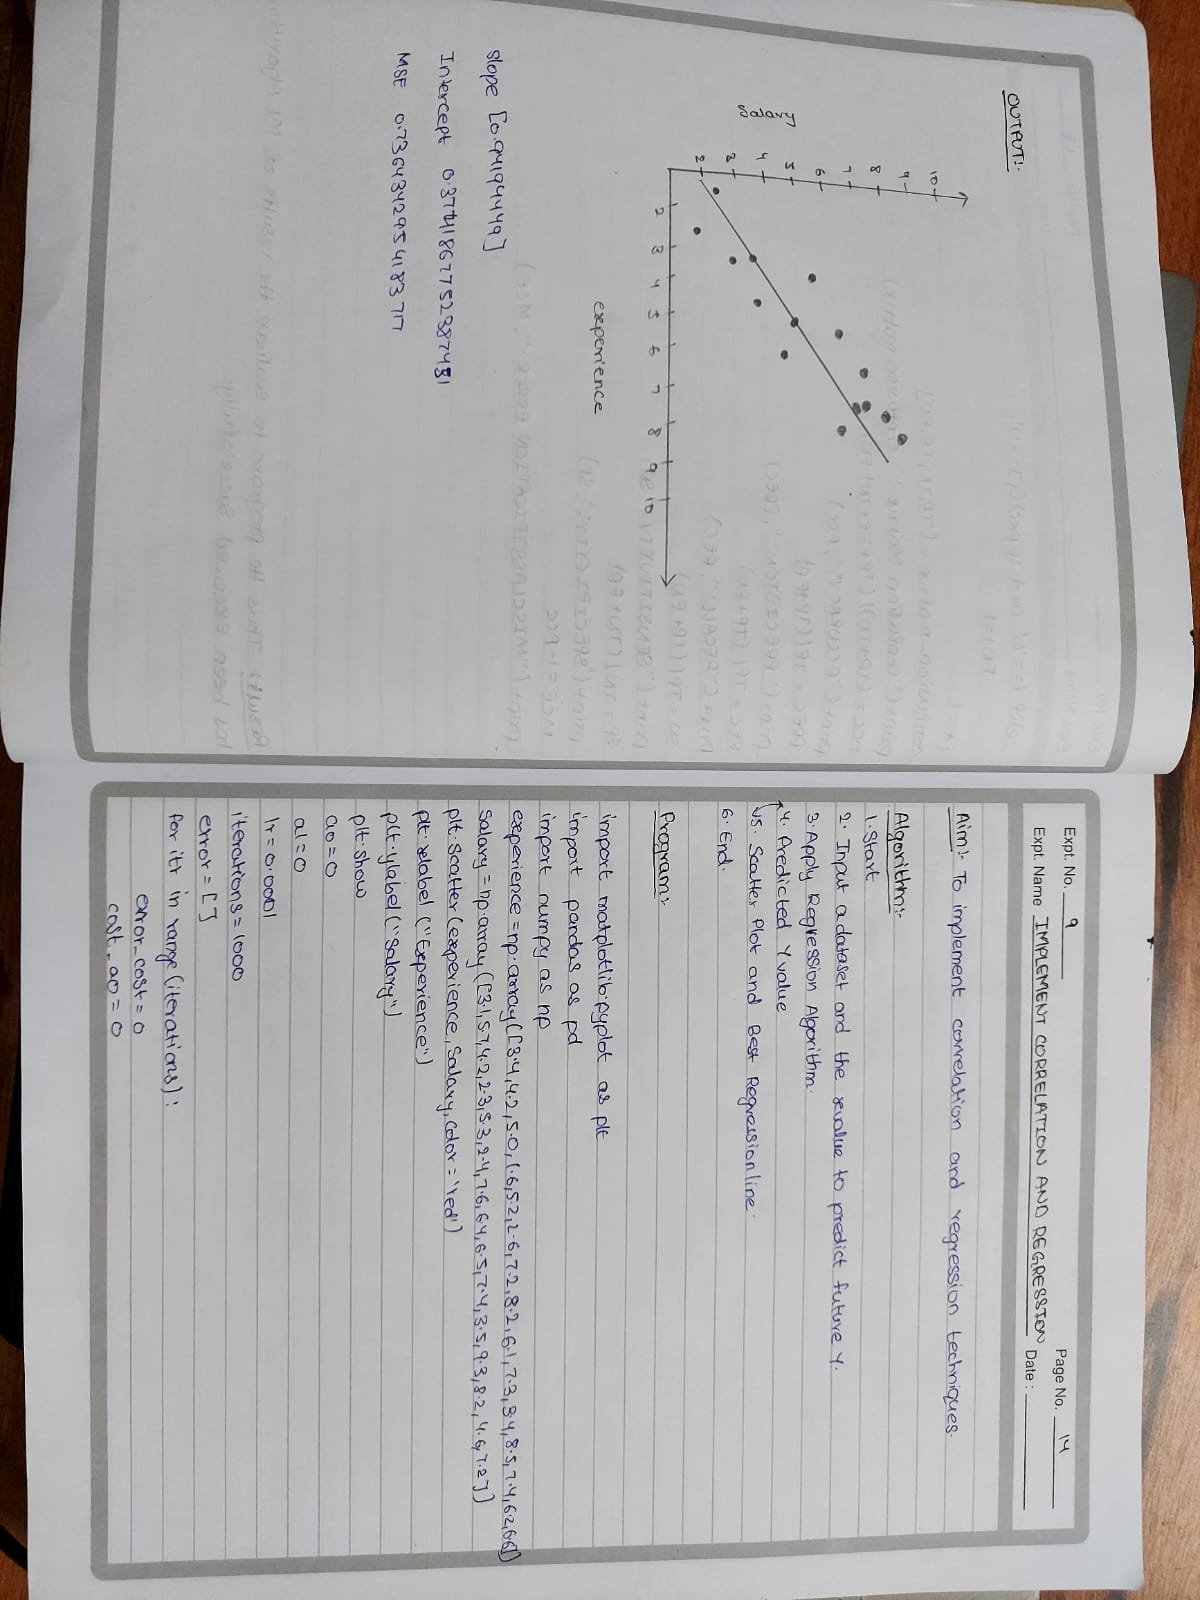 OUTPUT:-
10
9
8
7
6
5
4
3
2
Salary
2 3 4 5 6 7 8 9 10
experience
slope [0.94194449]
Intercept 0.3741867752387451
MSE 0.7364342954183717
Expt. No. 9
Page No. 14
Expt. Name IMPLEMENT CORRELATION AND REGRESSION
Date :
Aim:- To implement correlation and regression techniques.
Algorithm:-
1. Start
2. Input a dataset and the x value to predict future Y.
3. Apply Regression Algorithm.
4. Predicted Y value
5. Scatter Plot and Best Regression line.
6. End.
Program:-
import matplotlib.pyplot as plt
import pandas as pd
import numpy as np
experience = np.array([3.4,4.2,5.0,1.6,5.2,2.6,7.2,8.2,6.1,7.3,3.4,8.5,7.4,6.2,6.6])
Salary = np.array([3.1,5.7,4.2,2.3,5.3,2.4,7.6,6.4,6.5,7.4,3.5,9.3,8.2,4.6,7.2])
plt.scatter(experience, Salary, color = 'red')
plt.xlabel ("Experience")
plt.ylabel ("Salary")
plt.show
a0 = 0
a1 = 0
lr = 0.0001
iterations = 1000
error = []
for itr in range (iterations) :
error_cost = 0
cost_a0 = 0